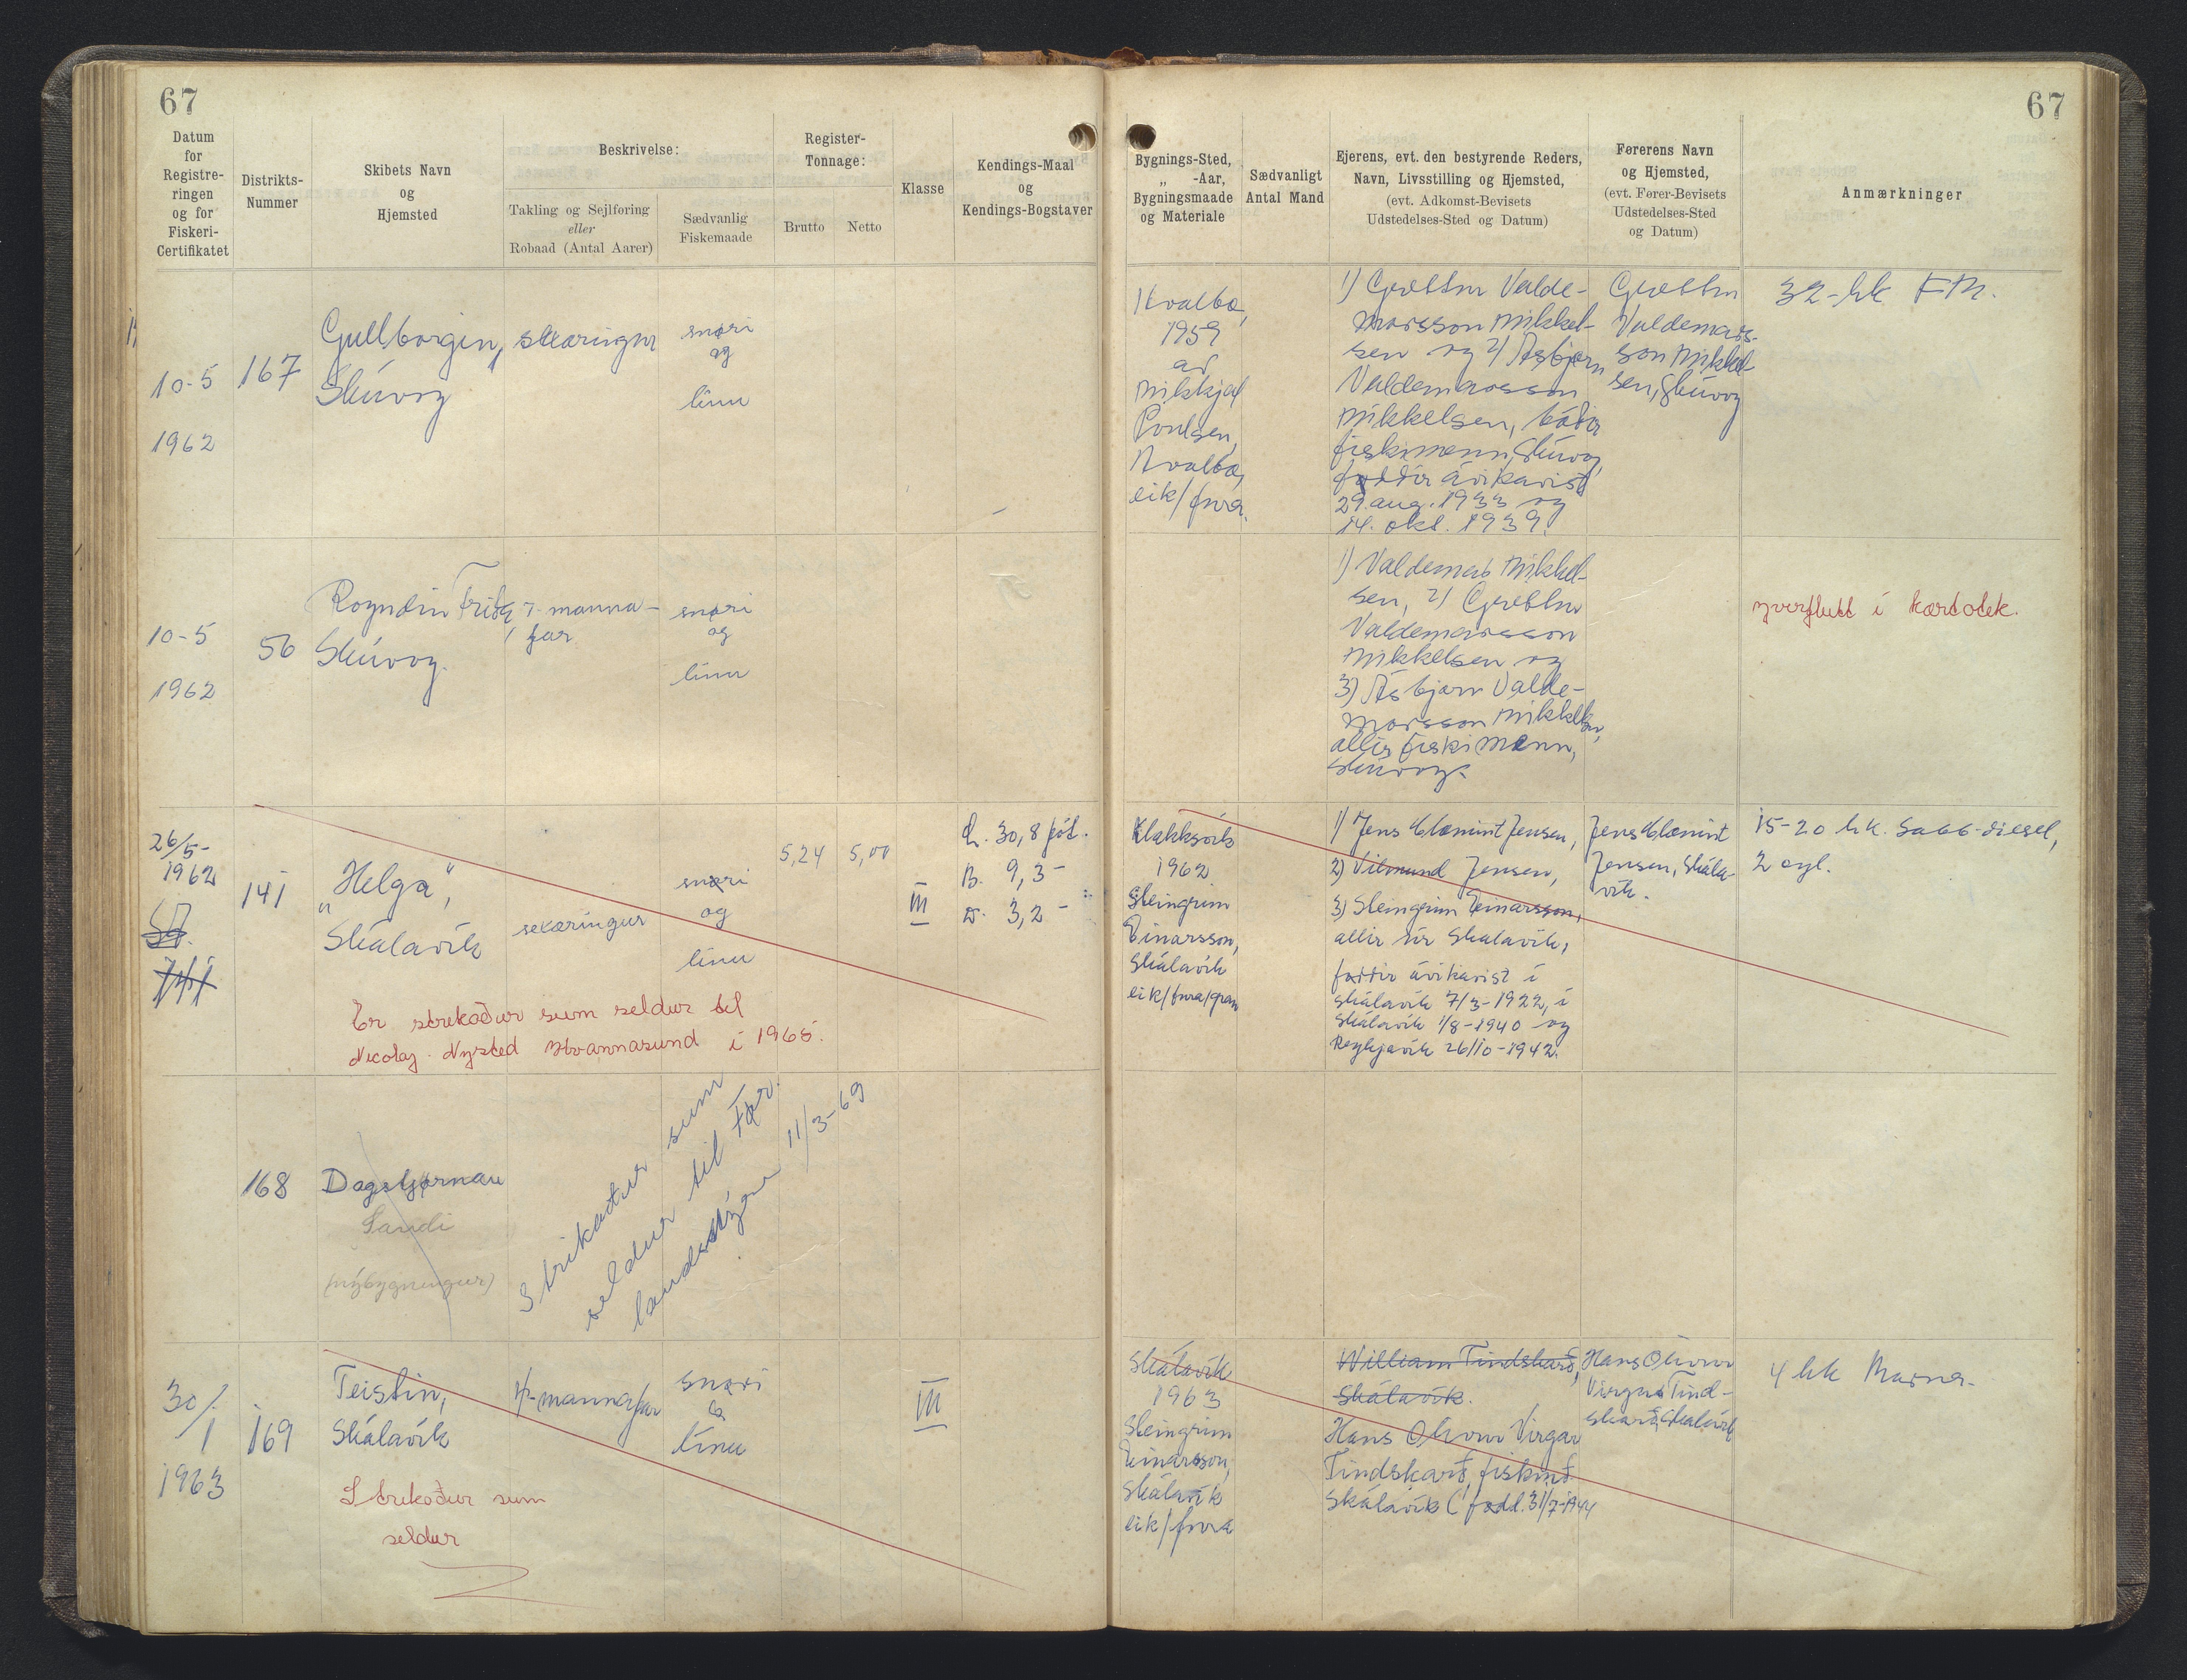 67
67
Datum
for
Registre-
ringen
og for
Fiskeri-
Certifikatet
Distrikts-
Nummer
Skibets Navn
og
Hjemsted
Beskrivelse:
Takling og Sejlføring
eller
Robaad (Antal Aarer)
Sædvanlig
Fiskemaade
Register-
Tonnage:
Brutto
Netto
Klasse
Kendings-Maal
og
Kendings-Bogstaver
Bygnings-Sted,
„ -Aar,
Bygningsmaade
og Materiale
Sædvanligt
Antal Mand
Ejerens, evt. den bestyrende Reders,
Navn, Livsstilling og Hjemsted,
(evt. Adkomst-Bevisets
Udstedelses-Sted og Datum)
Førerens Navn
og Hjemsted,
(evt. Fører-Bevisets
Udstedelses-Sted
og Datum)
Anmærkninger
10-5
1962
167
Gullborgin,
Skúvoy
snøri
og
línu
Hvalba,
1959
av
Mikkjal
Poulsen,
Hvalba,
eik/fura.
1) Grettur Valde-
marsson Mikkel-
sen og 2) Asbjørn
Valdemarsson
Mikkelsen, báðir
fiskimenn, Skúvoy,
føddir ávikavist
29. aug. 1933 og
14. okt. 1939.
Grettur
Valdemars-
son Mikkel-
sen, Skúvoy
32-hk FM.
10-5
1962
56
Royndin Fríða,
Skúvoy.
7-manna-
far
snøri
og
línu
1) Valdemar Mikkel-
sen, 2) Grettur
Valdemarsson
Mikkelsen og
3) Asbjørn Valde-
marsson Mikkelsen,
allir fiskimenn,
Skúvoy.
yverflutt í kartotek.
26/5-
1962
141
„Helga",
Skálavík
snøri
og
línu
5,24
5,00
III
L. 30,8 fót.
B. 9,3 -
D. 3,2 -
Er strikaður sum seldur til
Nicolaj Nysted Hvannasund í 1965.
Klakksvík
1962
Steingrim
Einarsson,
Skálavík
eik/fura/gran
1) Jens Clæmint Jensen,
2) Vilmund Jensen,
3) Steingrim Einarsson,
allir úr Skálavík,
føddir ávikavist í
Skálavík 7/3-1922, í
Skálavík 1/8-1940 og
Reykjavík 26/10-1942.
Jens Clæmint
Jensen, Skála-
vík.
15-20 hk. Sabb-diesel,
2 cyl.
168
Dagstjørnan
Sandi
(nýbygningur)
Strikaður sum
seldur til Før.
landsstýri 11/3-69
30/
1
1963
169
Teistin,
Skálavík
4-mannafar
snøri
&
línu
III
Strikaður sum
seldur
Skálavík
1963
Steingrim
Einarsson,
Skálavík
eik/fura
William Tindskarð,
Skálavík.
Hans Olivur Virgar
Tindskarð, fiskim.
Skálavík (fødd. 31/7-1944
Hans Olivur
Virgar Tind-
skarð, Skálavík
4 hk Marna-